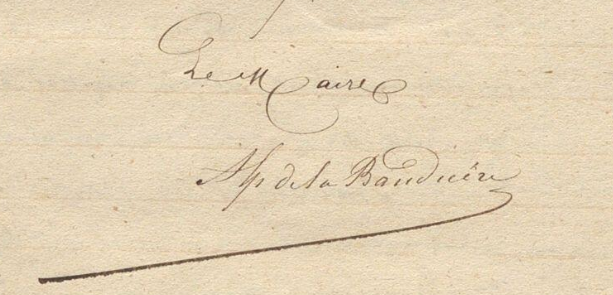 Le Maire
Alp de la Bauduère